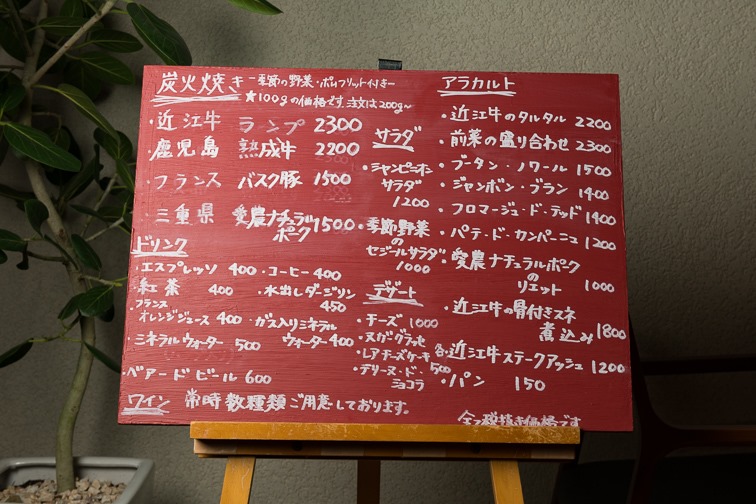 炭火焼き ー季節の野菜・ポムフリット付きー
★100gの価格です。注文は200g〜
・近江牛 ランプ 2300
・鹿児島 熟成牛 2200
・フランス バスク豚 1500
・三重県 愛農ナチュラル
ポーク 1500
ドリンク
・エスプレッソ 400 ・コーヒー 400
・紅茶 400 ・水出しダージリン
450
・フランス
オレンジジュース 400 ・ガス入りミネラル
ウォーター 400
・ミネラルウォーター 500
・ベアードビール 600
ワイン 常時数種類ご用意しております。
サラダ
・シャンピニオン
サラダ
1200
・季節野菜
の
セジールサラダ
1000
デザート
・チーズ 1000
・ヌガーグラッセ
・レアチーズケーキ 各500
・テリーヌ・ド・
ショコラ
アラカルト
・近江牛のタルタル 2200
・前菜の盛り合わせ 2300
・ブータン・ノワール 1500
・ジャンボン・ブラン 1400
・フロマージュ・ド・テッド 1400
・パテ・ド・カンパーニュ 1200
・愛農ナチュラルポーク
の
リエット 1000
・近江牛の骨付きスネ
煮込み 1800
・近江牛ステークアッシュ 1200
・パン 150
全て税抜き価格です